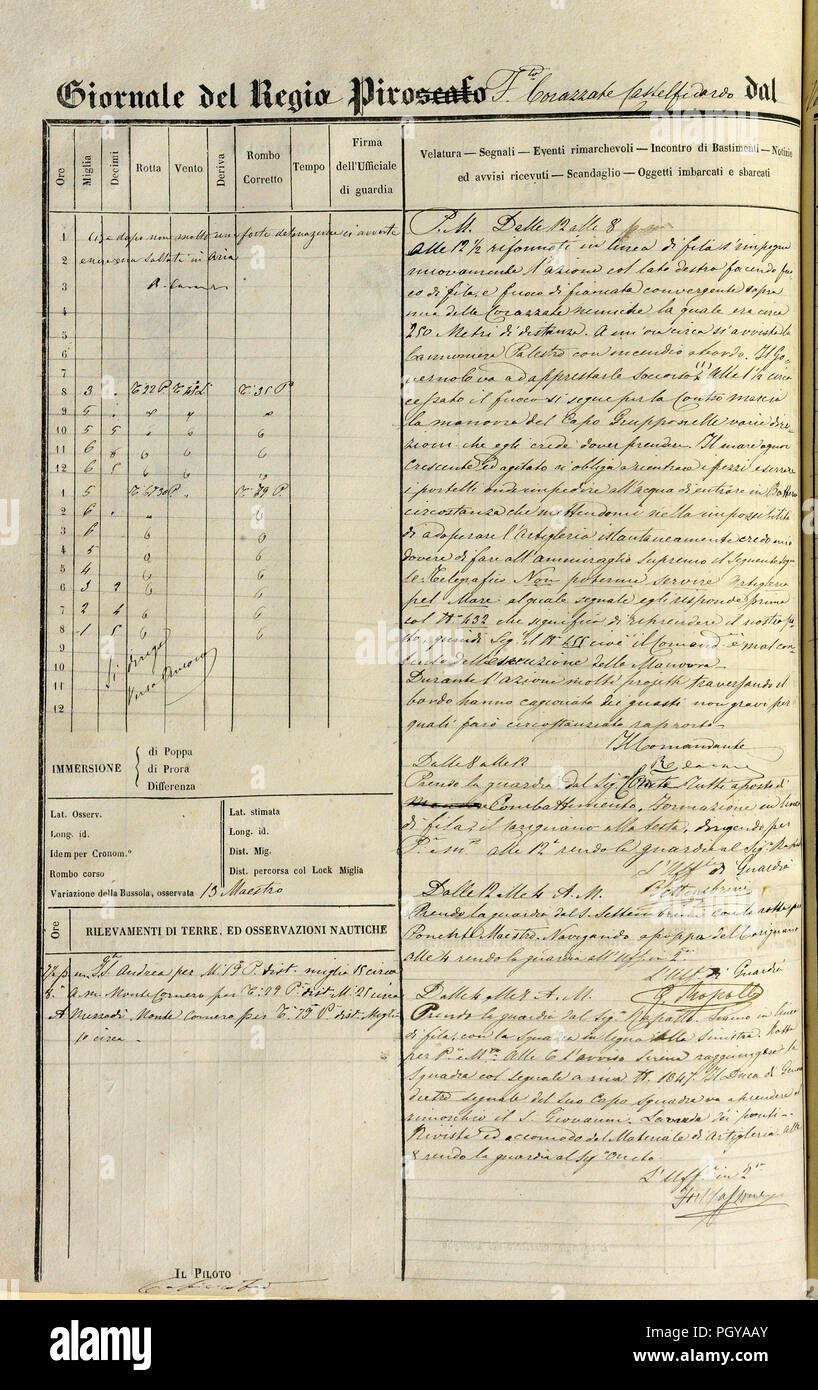 Giornale del Regio Piroscafo F.ta Corazzata Castelfidardo dal
Ore
Miglia
Decimi
Rotta
Vento
Deriva
Rombo
Corretto
Tempo
Firma
dell'Uffiziale
di guardia
Velatura — Segnali — Eventi rimarchevoli — Incontro di Bastimenti — Notizie
ed avvisi ricevuti — Scandaglio — Oggetti imbarcati e sbarcati
1 dopo non molto una forte detonazione ci avverte
2 saltati in aria
3
4
5
6
7
8 3
9 5
10 5 5
11 6 8
12 6 5
1 5
2 6
3 6
4 5
5 4
6 3 2
7 2 4
8 1 5
9
10 Si dirige
11 verso Ancona
12
P. M. Dalle 12 alle 8
Alle 12 ½ riformati in linea di fila s'impegna
nuovamente l'azione col lato destro facendo fuo
co di fila, e fuoco di fiancata convergente sopra
una delle Corazzate nemiche la quale era circa
250 Metri di distanza. A un'ora circa si avvista la
Cannoniera Palestro con incendio a bordo. Il Go-
vernolo va ad apprestarle soccorso Alle 1 ½ circa
cessato il fuoco si segue per la Contro marcia
la manovra del Capo Gruppo nelle varie dire-
zioni che egli crede dover prendere. Il mare ognor
crescente ed agitato ci obbliga a rientrare i pezzi e serrare
i portelli onde impedire all'acqua di entrare in Batteria
circostanza che mettendomi nella impossibilità
di adoperare l'Artiglieria istantaneamente credo mio
dovere di fare all'ammiraglio supremo il seguente Segna-
le Telegrafico Non potermi servire Artiglieria
pel Mare al quale segnale egli risponde prima
col N° 432 che significa di riprendere il nostro po-
sto, quindi Seg. il N° 455 cioè il Comand.te è mal con-
tento dell'Esecuzione della Manovra.
Durante l'azione molti projetti traversando il
bordo hanno cagionato dei guasti non gravi per
quali farò circostanziato rapporto
Il Comandante
Dalle 8 alle 12
Prendo la guardia dal Sig. Oneto. Tutti a posto di
Combattimento. Formazione in linea
di fila, il Carignano alla testa, dirigendo per
P.e M.o alle 12 rendo la guardia al Sig.
L'Uff.le di Guardia
Dalle 12 alle 4 A. M.
Prendo la guardia dal S. Settembrini con la rotta per
Ponente Maestro. Navigando a poppa del Carignano
alle 4 rendo la guardia all'Uff. in 2.a
L'Uff. di Guardia
Dalle 4 alle 8 A. M.
Prendo la guardia dal Sig. Siamo in linea
di fila, con la Squadra in legno alla Sinistra. Rotta
per P.e M.o Alle 6 l'avviso Sirena raggiungere la
Squadra col segnale a ria N. 1047. Il Duca di Genova
dietro segnale del Suo Capo squadra va a prendere a
rimorchio il S. Giovanni. Lavanda dei ponti
Rivista ed accomodo del Materiale di Artiglieria. Alle
8 rendo la guardia al Sig. Oneto.
L'Uff. in 2.a
IMMERSIONE
di Poppa
di Prora
Differenza
Lat. Osserv.
Long. id.
Idem per Cronom.°
Rombo corso
Variazione della Bussola, osservata 13 Maestro
Lat. stimata
Long. id.
Dist. Mig.
Dist. percorsa col Lock Miglia
Ore
RILEVAMENTI DI TERRE, ED OSSERVAZIONI NAUTICHE
S.t Andrea per M. 19 P. dist. miglia 15 circa
8 a. m. Monte Cornero per dist. M. 25 circa
A Mezzodì Monte Cornero per dist. Miglia
10 circa
IL PILOTO
alamy
PGYAAY
www.alamy.com